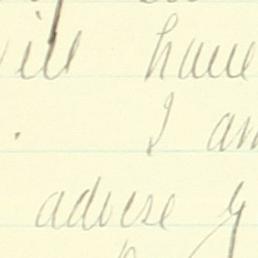 will have
. I am
advise y